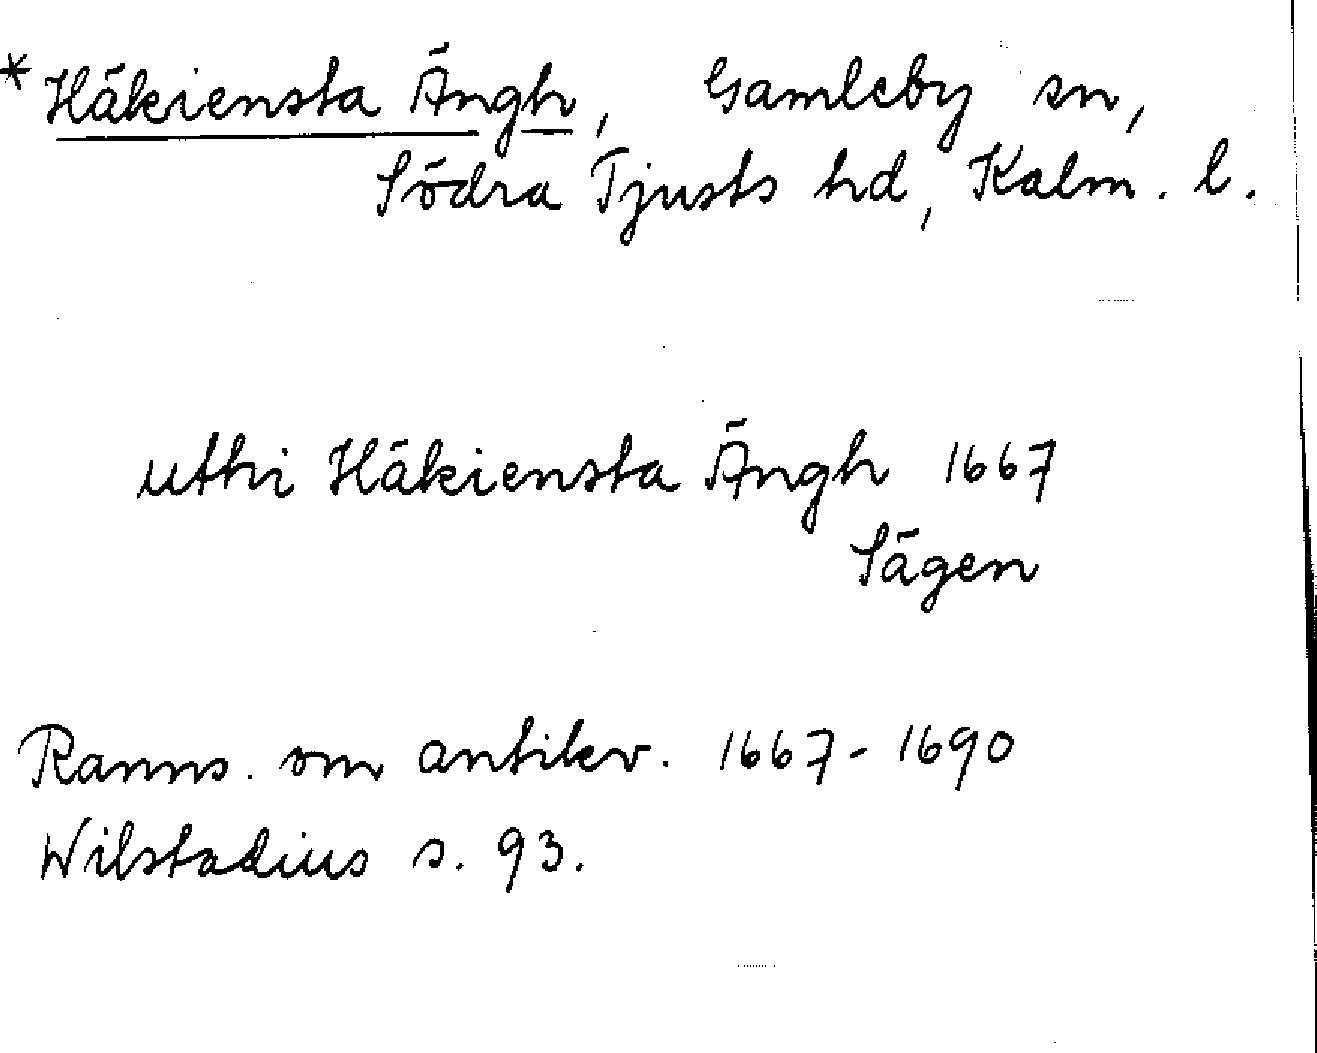 * Häkiensta Ängh, Gamleby sn,
Södra Tjusts hd, Kalm. l.
uthi Häkiensta Ängh 1667
Sägen
Ranns. om antikv. 1667-1690
Wilstadius s. 93.